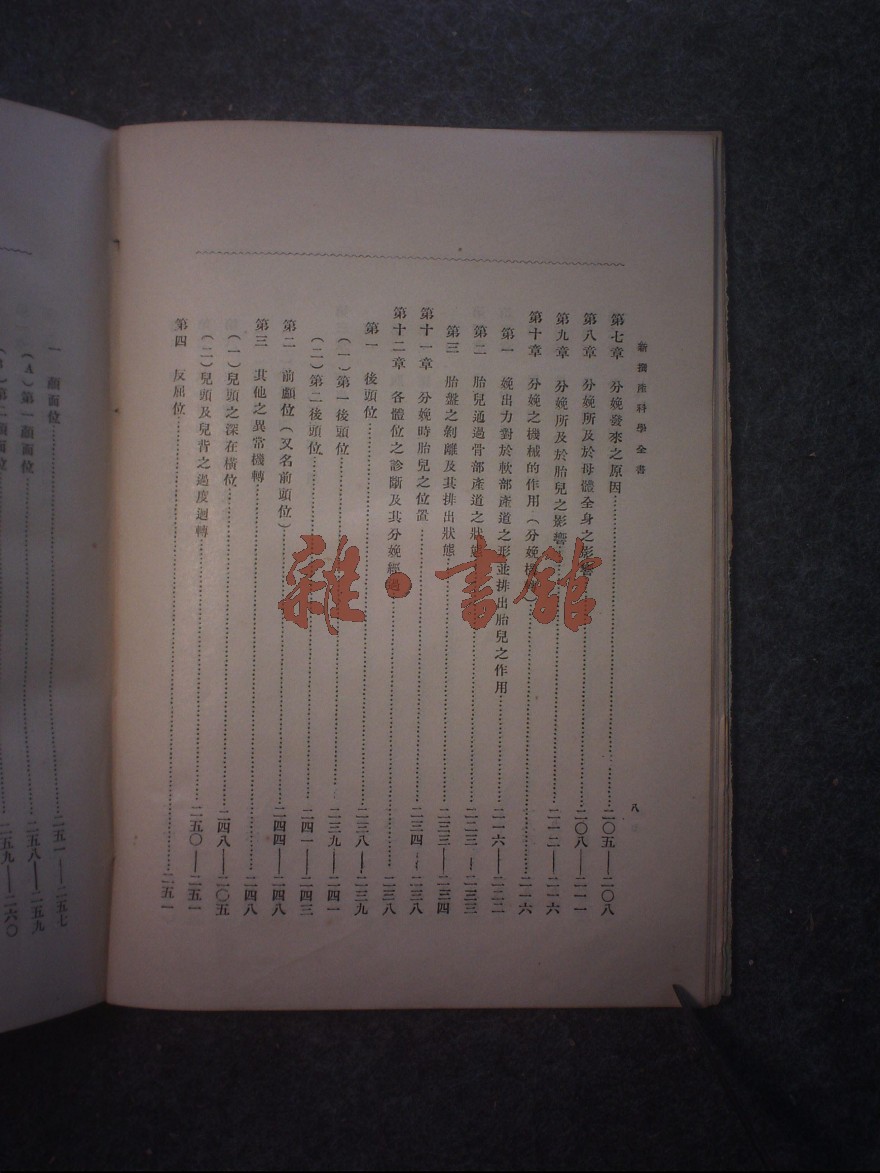 新撰産科學全書
八
第七章 分娩發來之原因…………二〇五——二〇八
第八章 分娩所及於母體全身之影響…………二〇八——二一一
第九章 分娩所及於胎兒之影響…………二一二——二一六
第十章 分娩之機械的作用(分娩機轉)…………二一六
第一 娩出力對於軟部產道之形並排出胎兒之作用…………二一六——二二二
第二 胎兒通過骨部產道之狀態…………二二三——二三三
第三 胎盤之剝離及其排出狀態…………二三三——二三四
第十一章 分娩時胎兒之位置…………二三四——二三八
第十二章 各體位之診斷及其分娩經過…………二三八
第一 後頭位…………二三八——二三九
(一)第一後頭位…………二三九——二四一
(二)第二後頭位…………二四一——二四三
第二 前顱位(又名前頭位)…………二四四——二四八
第三 其他之異常機轉…………二四八
(一)兒頭之深在橫位…………二四八——二〇五
(二)兒頭及兒背之過度迴轉…………二五〇——二五一
第四 反屈位…………二五一
一 顏面位…………二五一——二五七
(A)第一顏面位…………二五八——二五九
第二顏面位…………二五九——二六〇
雜·書館